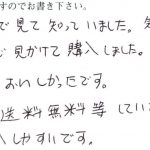 すのでお書き下さい。
で見て知っていました。
で見かけて購入しました。
おいしかったです。
送料無料等してい
入しやすいです。